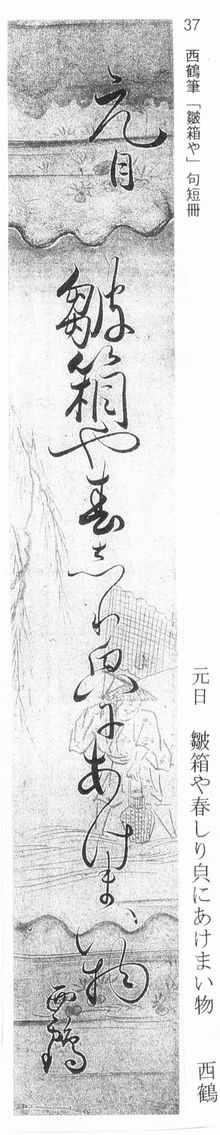 37
西鶴筆「皺箱や」句短冊
元日 皺箱や春しり㒵にあけまい物 西鶴
元日
皺箱や春しり㒵にあけまい物
西鶴